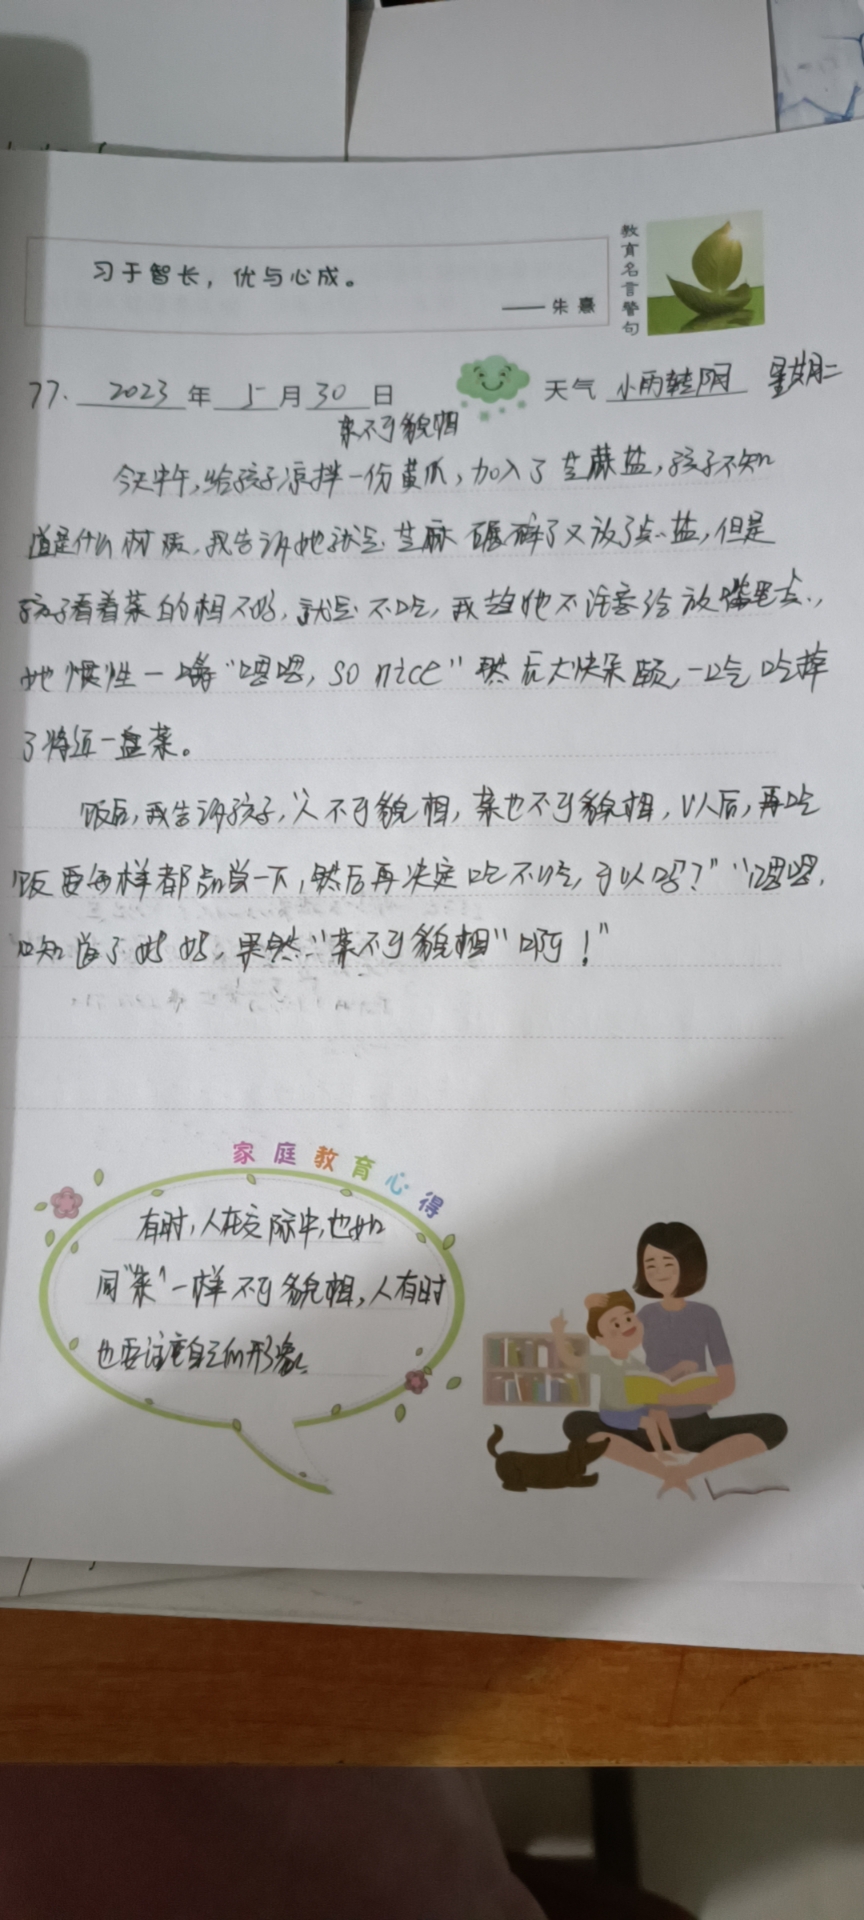 习于智长，优与心成。
——朱熹
教育名言警句
77. 2023年5月30日 天气 小雨转阴 星期二
菜不可貌相
今天中午，给孩子凉拌一份黄瓜，加入了芝麻盐，孩子不知
道是什么材质，我告诉她就是芝麻碾碎了又放了点盐，但是
孩子看着菜的相不好，就是不吃，我趁她不注意给放嘴里点，
她惯性一嚼“嗯嗯，so nice”然后大快朵颐，一口气吃掉
了将近一盘菜。
饭后，我告诉孩子，“人不可貌相，菜也不可貌相，以后，再吃
饭要每样都品尝一下，然后再决定吃不吃，可以吗？”“嗯嗯，
知道了妈妈，果然“菜不可貌相”啊！”
家庭教育心得
有时，人在交际中，也如
同“菜”一样不可貌相，人有时
也要注意自己的形象。